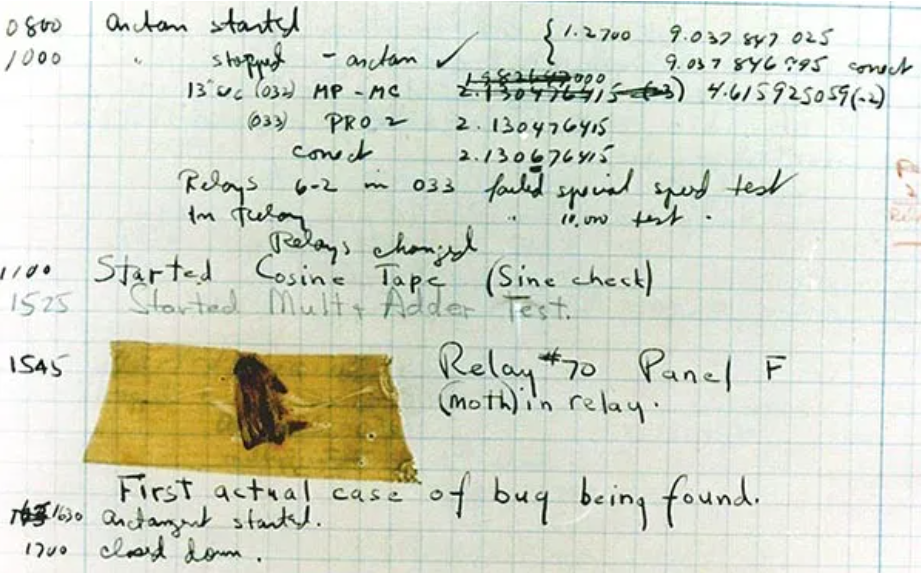 0800 antan started
1000 " stopped - antan ✓ { 1.2700 9.037 847 025
9.037 846 795 conect
13"uc (032) MP - MC 1.982647000 2.130476415 (-3) 4.615925059(-2)
(033) PRO 2 2.130476415
conect 2.130676415
Relays 6-2 in 033 failed special speed test
In Relay " 10,000 test .
Relays changed
1100 Started Cosine Tape (Sine check)
1525 Started Mult + Adder Test.
1545 Relay #70 Panel F
(moth) in relay.
First actual case of bug being found.
1630 arctangent started.
1700 closed down.